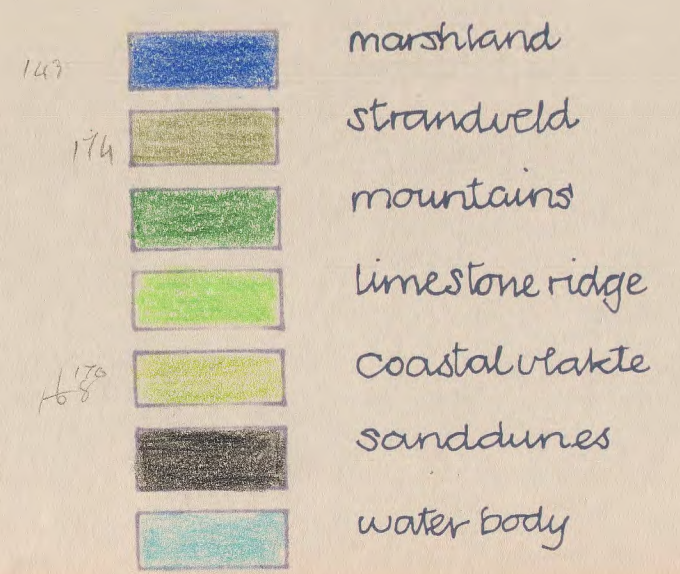 marshland
174 strandveld
mountains
limestone ridge
coastal vlakte
sanddunes
water body